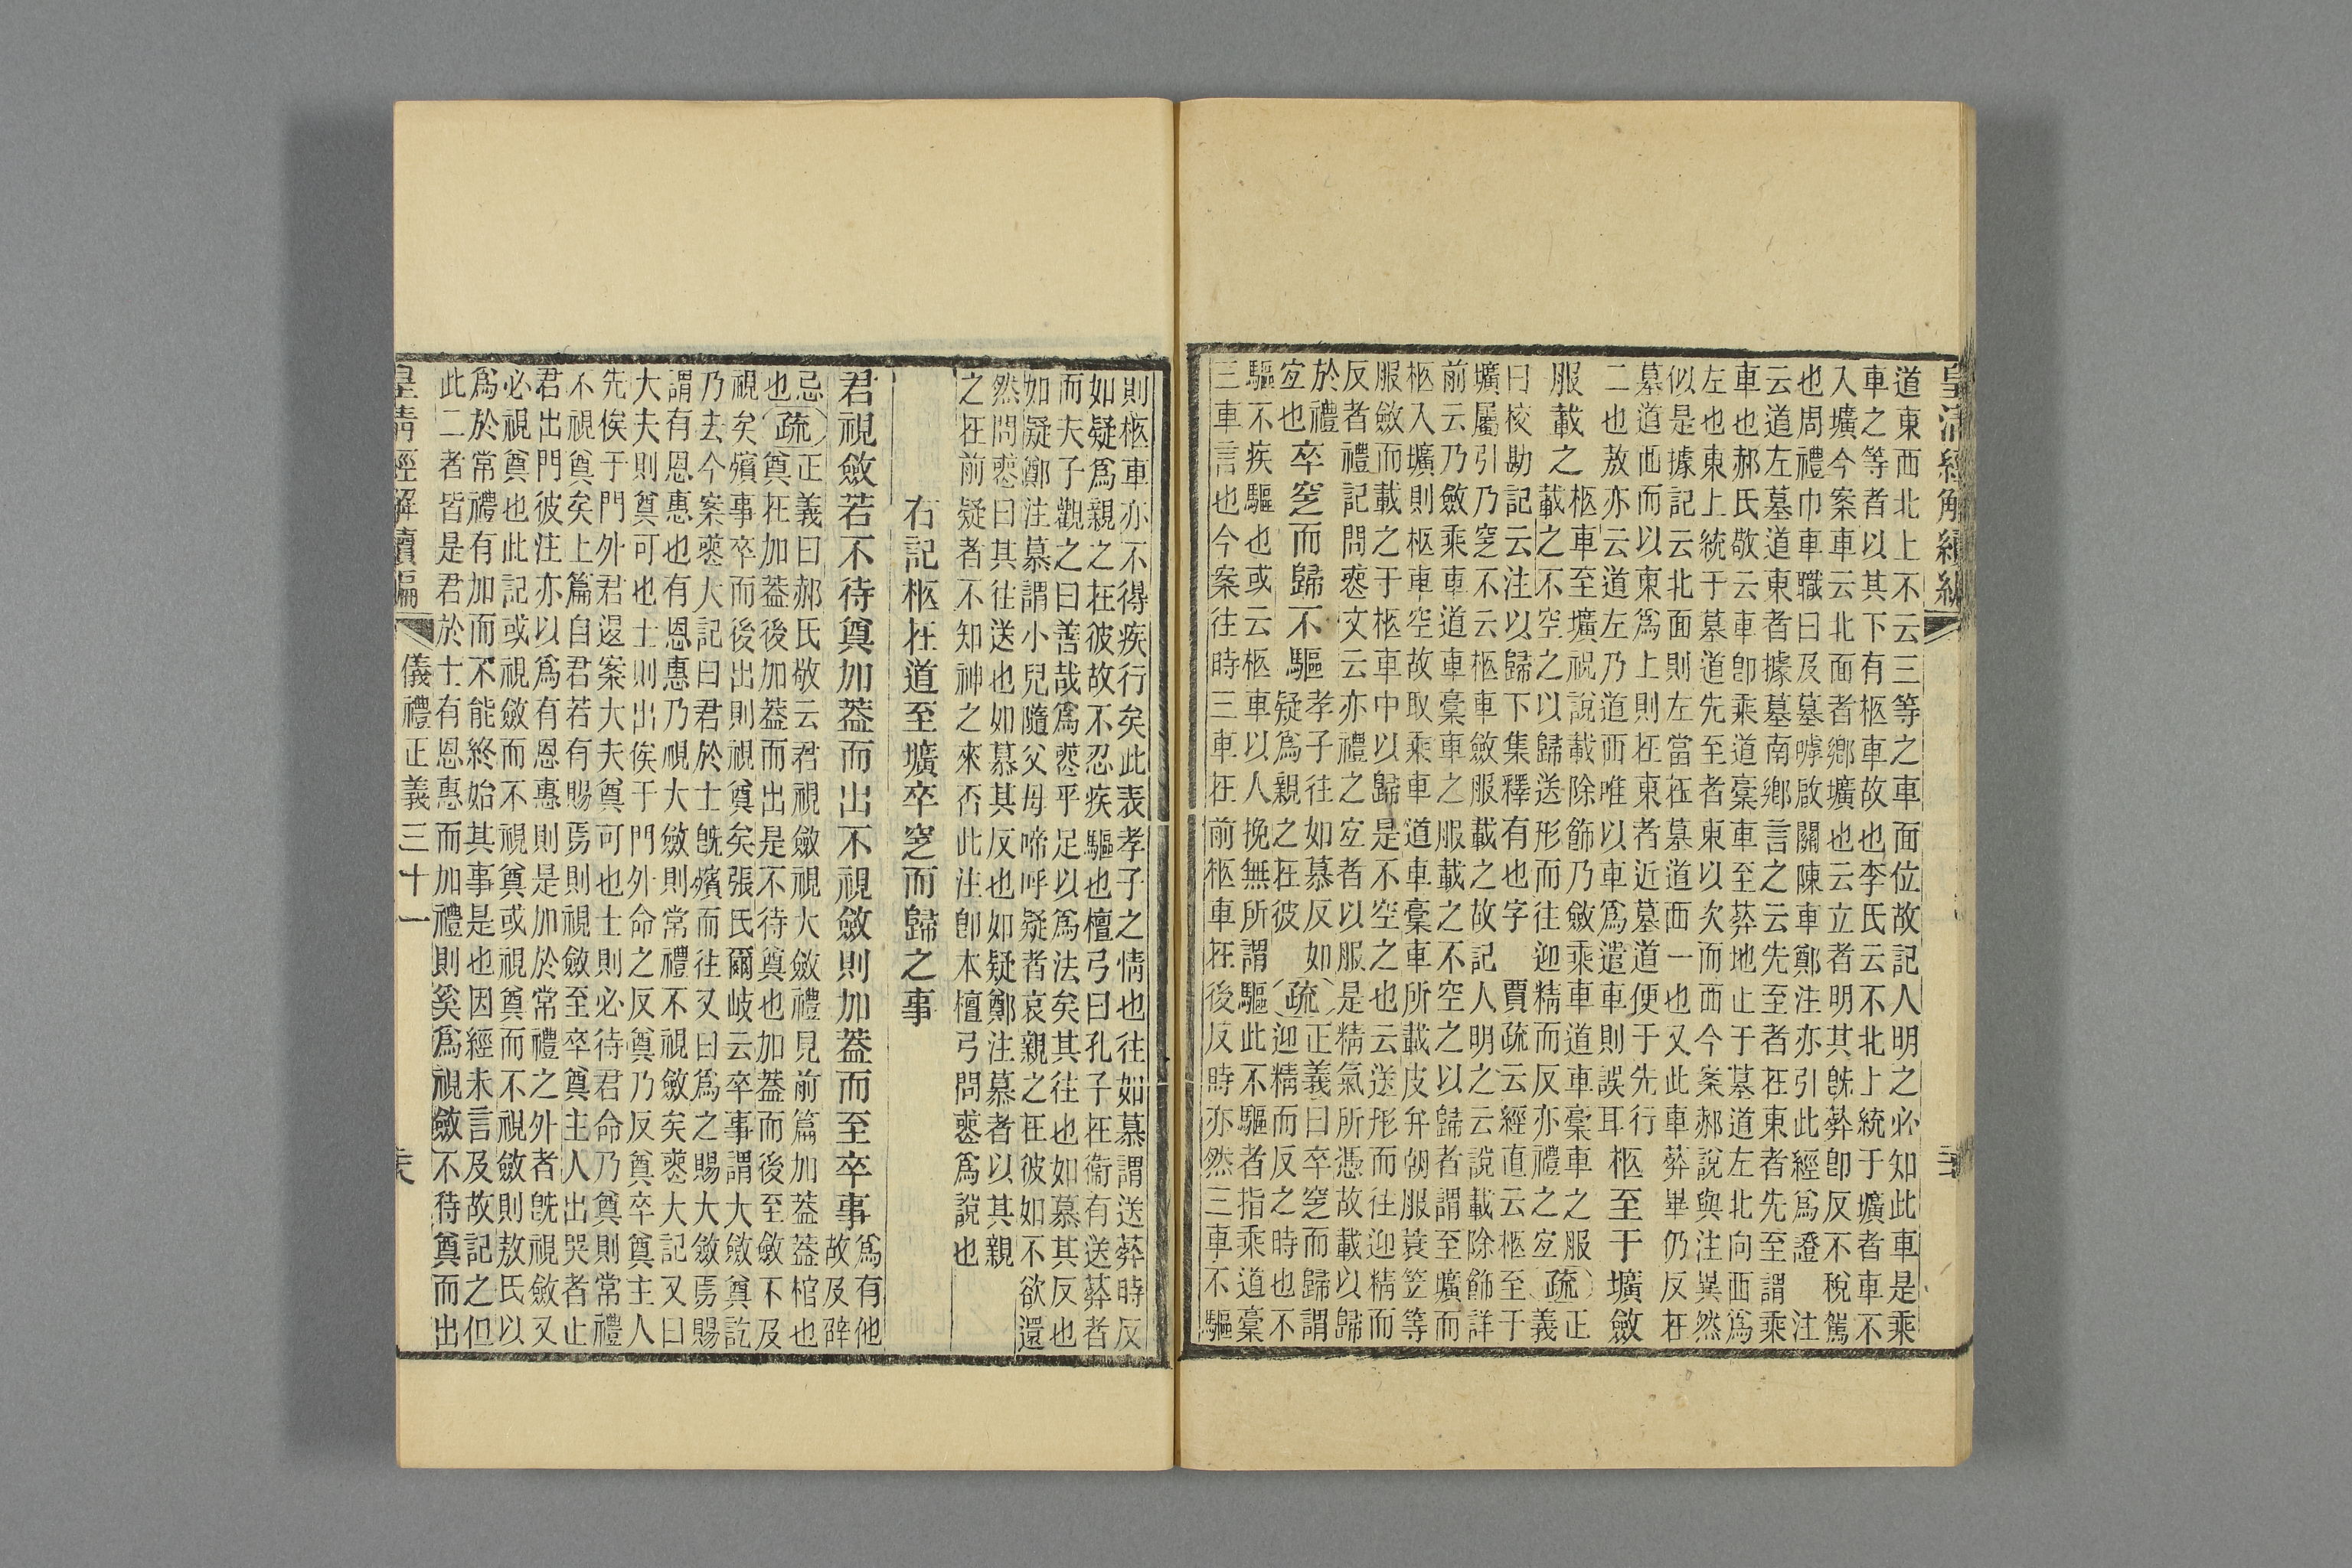 皇清經解續編
道東西北上不云三等之車面位故記人明之必知此車是乘
車之等者以其下有柩車故也李氏云不北上統于壙者車不
入壙今案車云北面者鄉壙也云立者明其旣葬卽反不稅駕
也周禮巾車職曰及墓嘑啟關陳車鄭注亦引此經爲證 注
云道左墓道東者據墓南鄉言之云先至者在東者先至謂乘
車也郝氏敬云車卽乘道槀車至葬地止于墓道左北向西爲
左也東上統于墓道先至者東以次而西今案郝說與注異然
似是據記云北面則左當在墓道西一也又此車葬畢仍反在
墓道西而以東爲上則在東者近墓道便于先行
二也敖亦云道左乃道西唯以車爲遣車則誤耳
柩至于壙斂
服載之
柩車至壙祝說載除飾乃斂乘車道車槀車之服
載之不空之以歸送形而往迎精而反亦禮之宜
疏 正義
曰校勘記云注以歸下集釋有也字 賈疏云經直云柩至于
壙屬引乃窆不云柩車斂服載之故記人明之云說載除飾詳
前云乃斂乘車道車槀車之服載之不空之以歸者謂至壙而
柩入壙則柩車空故取乘車道車槀車所載皮弁朝服蓑笠等
服斂而載之于柩車中以歸是不空之也云送形而往迎精而
反者禮記問喪文云亦禮之宜者以服是精氣所憑故載以歸
於禮
宜也
卒窆而歸不驅
孝子往如慕反如
疑爲親之在彼
疏 正義曰卒窆而歸謂
迎精而反之時也不
驅不疾驅也或云柩車以人挽無所謂驅此不驅者指乘道槀
三車言也今案往時三車在前柩車在後反時亦然三車不驅
則柩車亦不得疾行矣此表孝子之情也往如慕謂送葬時反
如疑爲親之在彼故不忍疾驅也檀弓曰孔子在衞有送葬者
而夫子觀之曰善哉爲喪乎足以爲法矣其往也如慕其反也
如疑鄭注慕謂小兒隨父母啼呼疑者哀親之在彼如不欲還
然問喪曰其往送也如慕其反也如疑鄭注慕者以其親
之在前疑者不知神之來否此注卽本檀弓問喪爲說也
右記柩在道至壙卒窆而歸之事
君視斂若不待奠加蓋而出不視斂則加蓋而至卒事
爲有他
故及辟
忌
也
疏 正義曰郝氏敬云君視斂視大斂禮見前篇加蓋蓋棺也
奠在加蓋後加蓋而出是不待奠也加蓋而後至斂不及
視矣殯事卒而後出則視奠矣張氏爾岐云卒事謂大斂奠訖
乃去今案喪大記曰君於士旣殯而往又曰爲之賜大斂焉賜
謂有恩惠也有恩惠乃視大斂則常禮不視斂矣喪大記又曰
大夫則奠可也士則出俟于門外命之反奠乃反奠卒奠主人
先俟于門外君退案大夫奠可也士則必待君命乃奠則常禮
不視奠矣上篇自君若有賜焉則視斂至卒奠主人出哭者止
君出門彼注亦以爲有恩惠則是加於常禮之外者旣視斂又
必視奠也此記或視斂而不視奠或視奠而不視斂則敖氏以
爲於常禮有加而不能終始其事是也因經未言及故記之但
此二者皆是君於士有恩惠而加禮則奚爲視斂不待奠而出
皇清經解續編 儀禮正義三十一